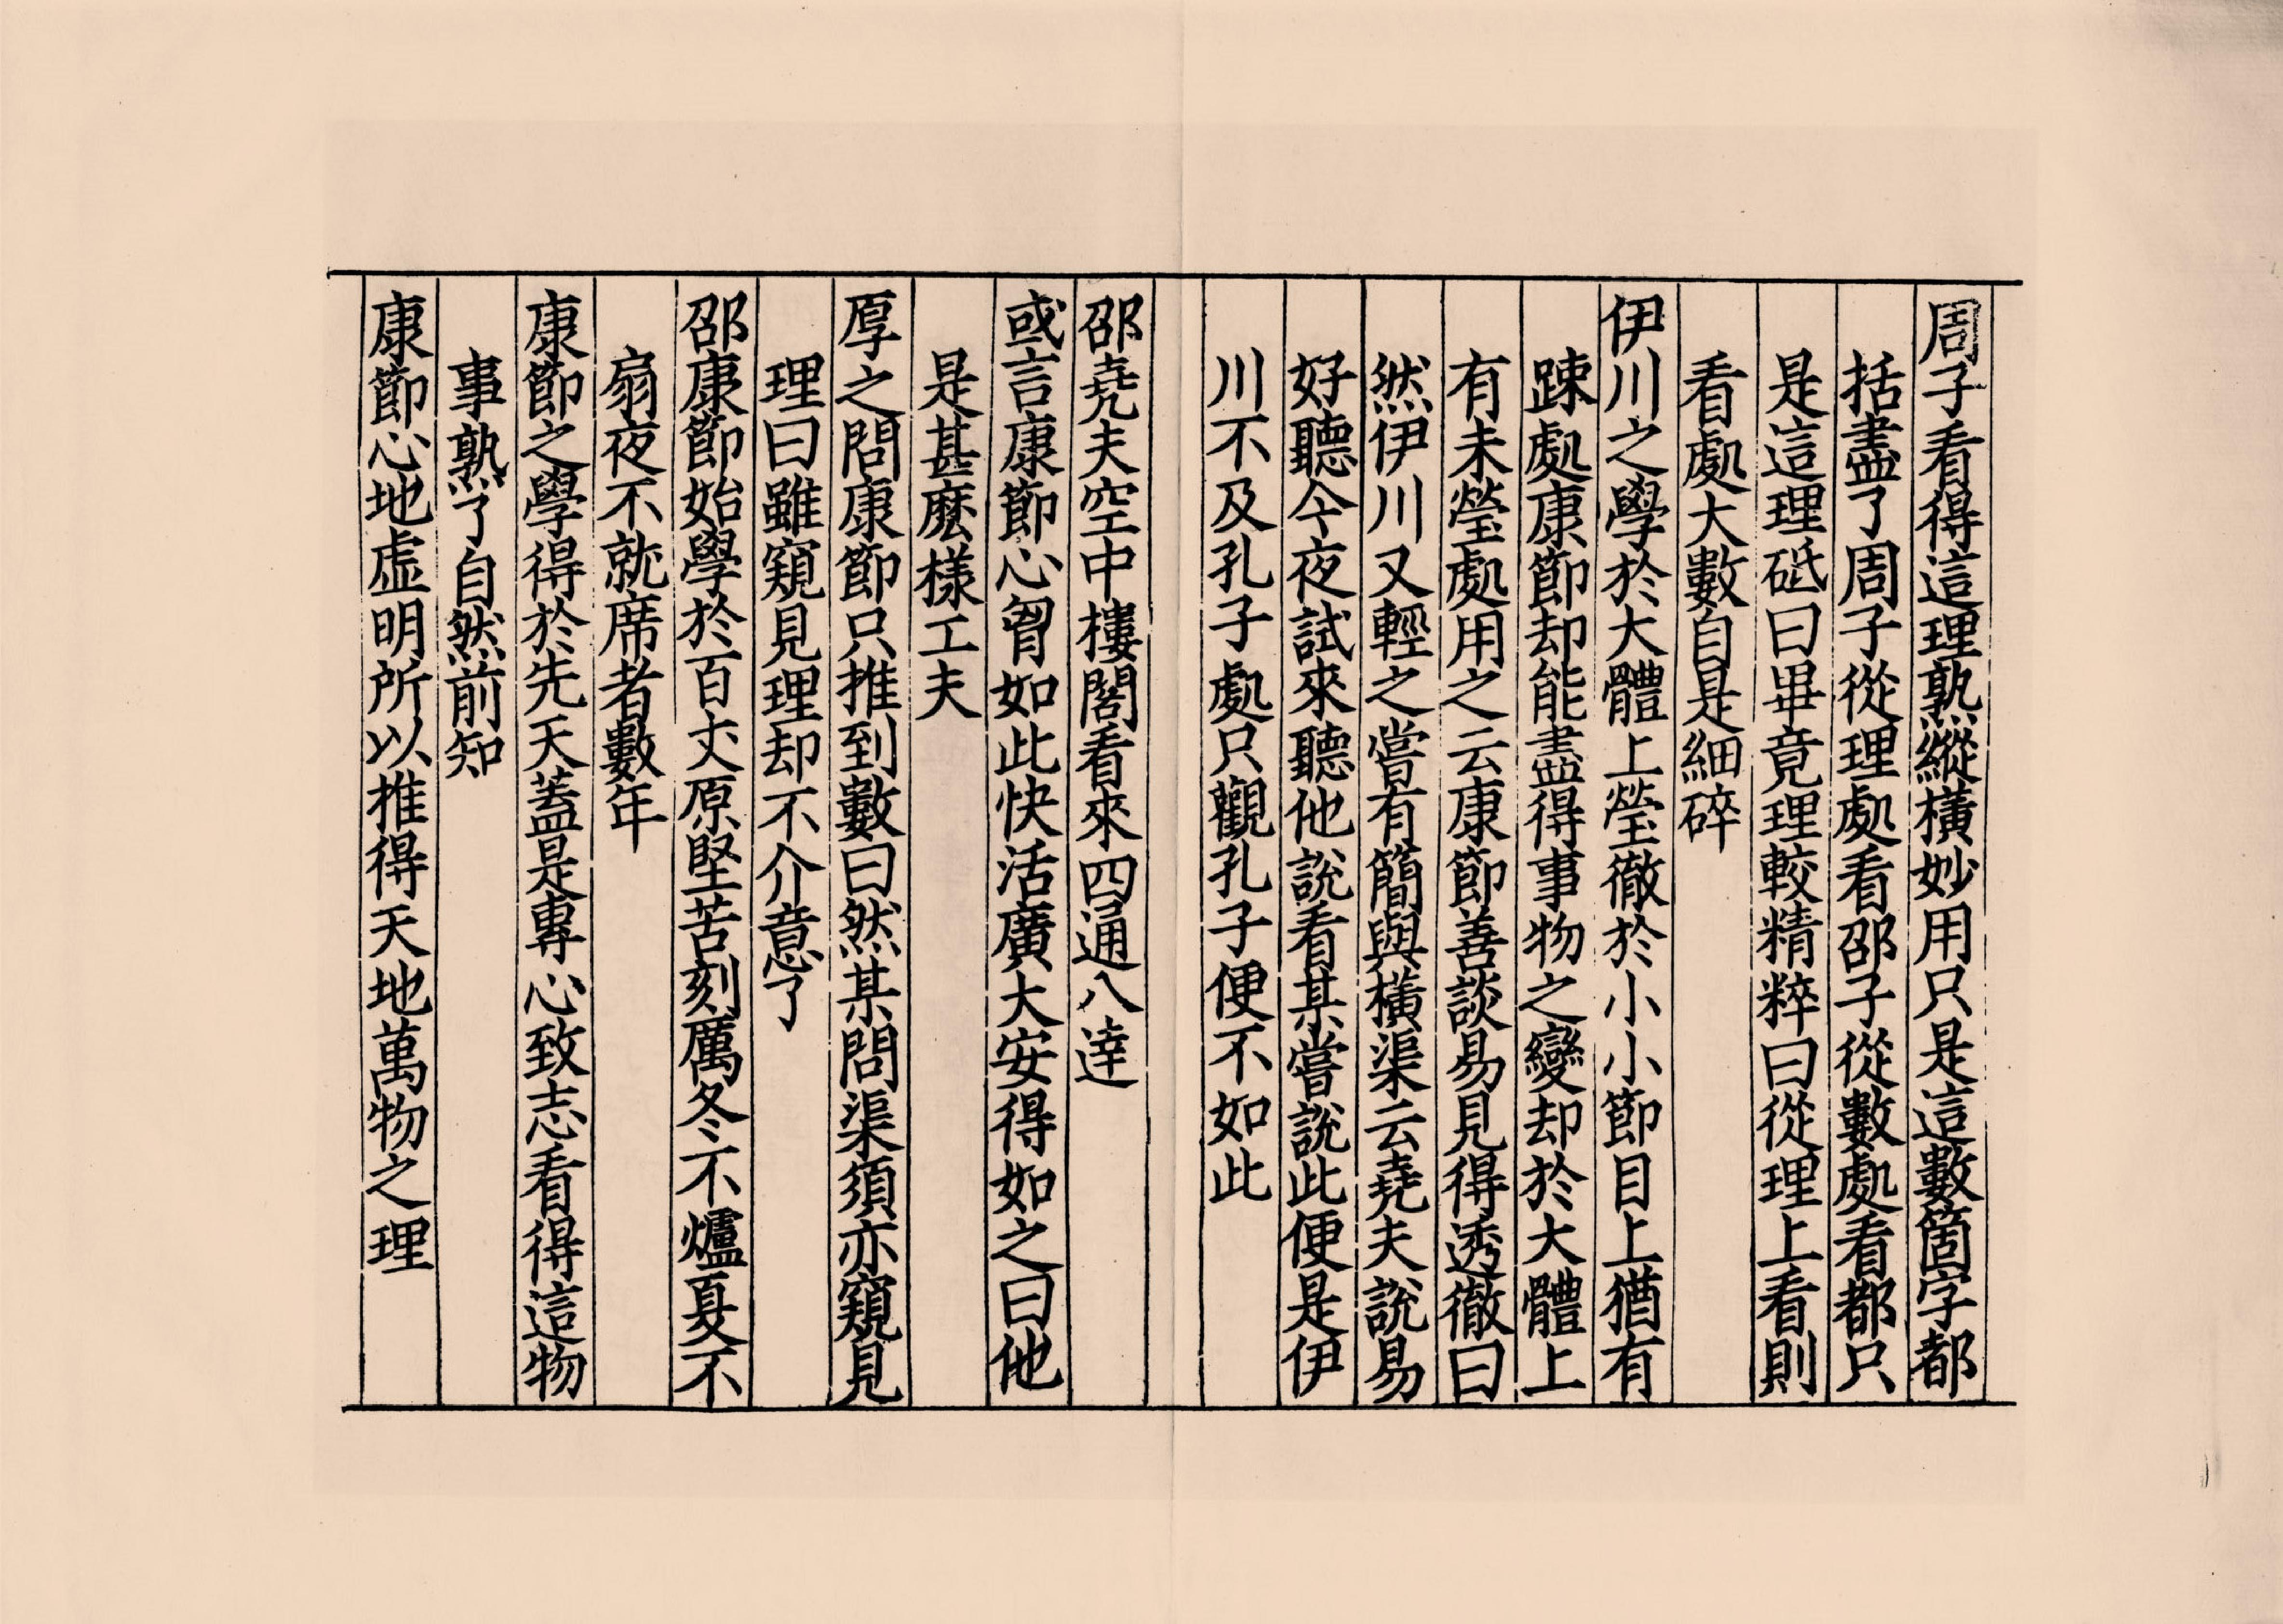 周子看得這理熟縱橫妙用只是這數箇字都
括盡了周子從理處看邵子從數處看都只
是這理砥曰畢竟理較精粹曰從理上看則
看處大數自是細碎
伊川之學於大體上瑩徹於小小節目上猶有
踈處康節却能盡得事物之變却於大體上
有未瑩處用之云康節善談易見得透徹曰
然伊川又輕之嘗有簡與橫渠云堯夫說易
好聽今夜試來聽他說看某嘗說此便是伊
川不及孔子處只觀孔子便不如此
邵堯夫空中樓閣看來四通八達
或言康節心胷如此快活廣大安得如之曰他
是甚麽樣工夫
厚之問康節只推到數曰然某問渠須亦窺見
理曰雖窺見理却不介意了
邵康節始學於百丈原堅苦刻厲冬不爐夏不
扇夜不就席者數年
康節之學得於先天蓋是專心致志看得這物
事熟了自然前知
康節心地虛明所以推得天地萬物之理